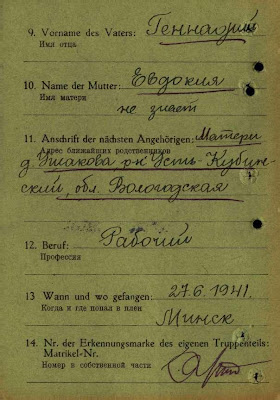 9. Vorname des Vaters: Геннадий
Имя отца
10. Name der Mutter: Евдокия
Имя матери
не знает
11. Anschrift der nächsten Angehörigen: Матери
Адрес ближайших родственников
д. Ушакова р-н Усть-Кубин-
ский, обл. Вологодская
12. Beruf: Рабочий
Профессия
13 Wann und wo gefangen: 27.6.1941.
Когда и где попал в плен
Минск
14. Nr. der Erkennungsmarke des eigenen Truppenteils:
Matrikel-Nr.
Номер в собственной части